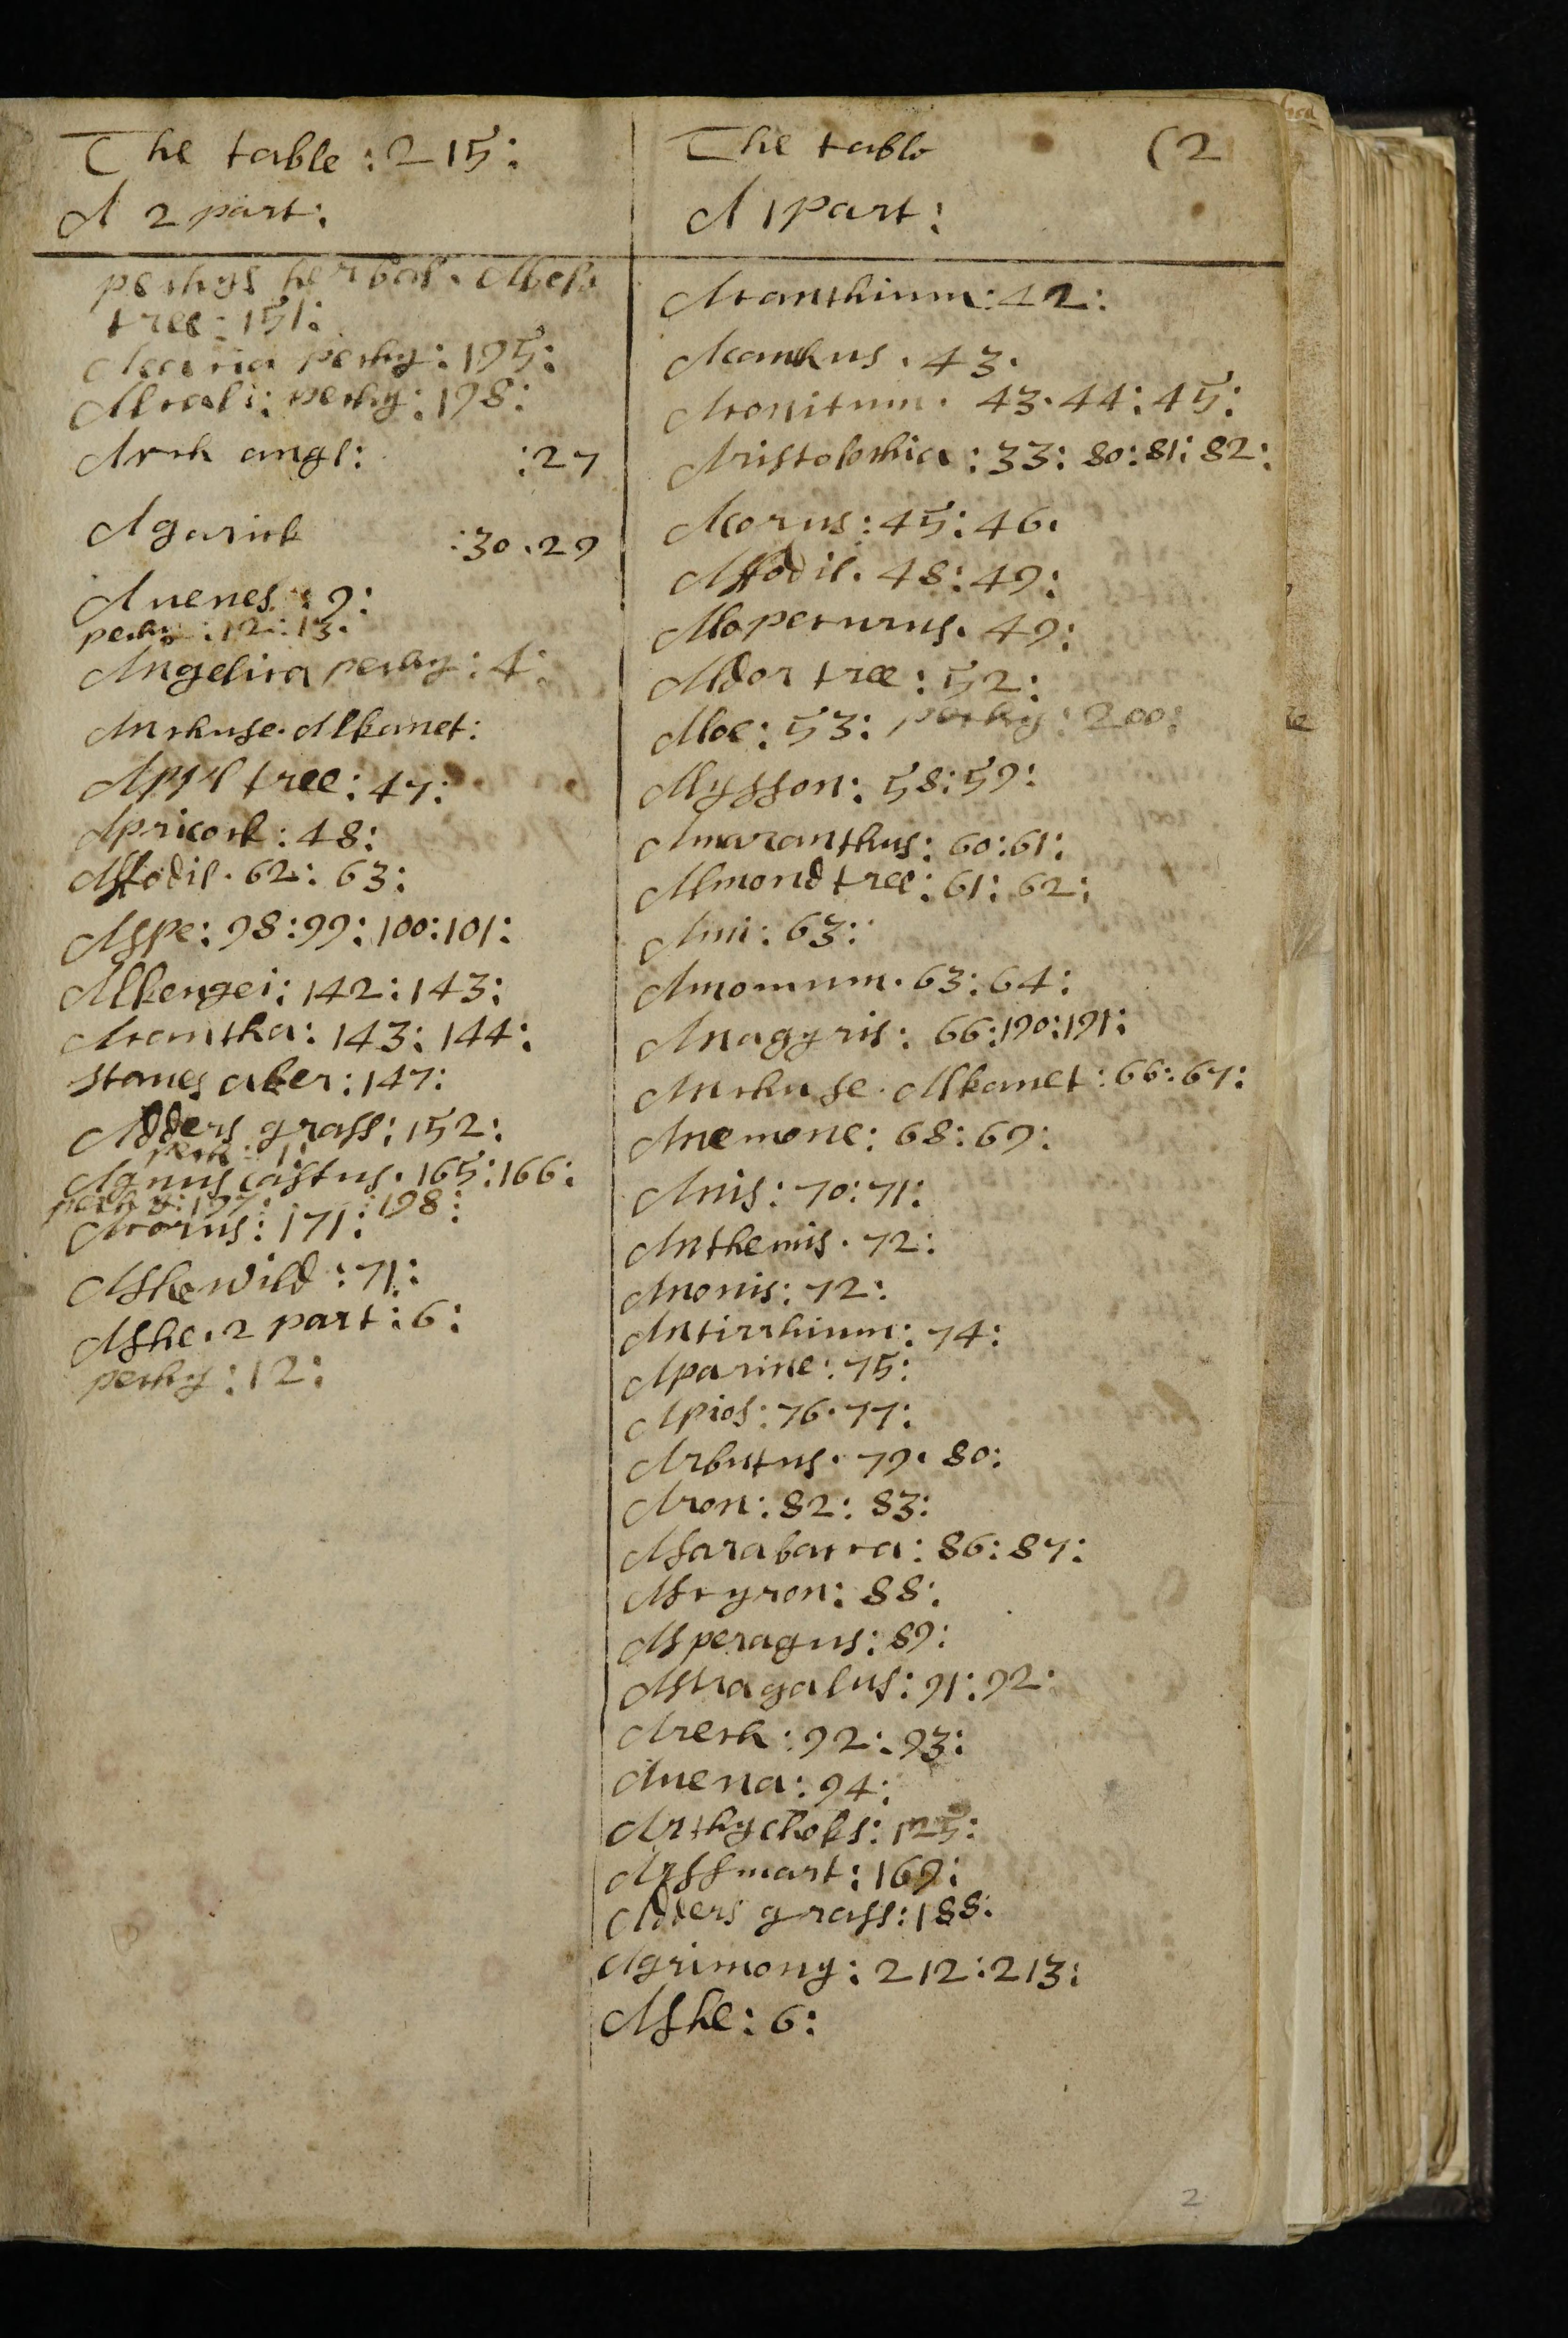 The table : 215 :
A 2 part :
pechys herbal . Abels
tree : 151 :
Acacia pechy : 195 :
Alcali : pechy : 198 :
Arch angl : : 27
Agarick : 30 . 29
Auenes : 9 :
pechy : 12 : 13 .
Angelica pechy : 4 :
Anchuse . Alkanet :
Apyl tree : 47 :
Apricock : 48 :
Affodil . 62 : 63 :
Aspe : 98 : 99 : 100 : 101 :
Alkengei : 142 : 143 :
Acantha : 143 : 144 :
stones aker : 147 :
Adders grass : 152 :
pech : 1 :
Agnus castus . 165 : 166 :
pechy : 197 : : 198 :
Acorus : 171 :
Ashe wild : 71 :
Ashe . 2 part : 6 :
pechy : 12 :
The table (2
A 1 part :
Acanthium : 42 :
Acanthus . 43 .
Aconitum . 43 . 44 : 45 :
Aristolochia : 33 : 80 : 81 : 82 :
Acorus : 45 : 46 .
Affodil . 48 : 49 :
Alopecurus . 49 :
Aldor tree : 52 :
Aloe : 53 : pechy : 200 :
Alysson : 58 : 59 :
Amaranthus : 60 : 61 :
Almond tree : 61 : 62 :
Ami : 63 :
Amomum . 63 : 64 :
Anagyris : 66 : 190 : 191 :
Anchuse . Alkanet : 66 : 67 :
Anemone : 68 : 69 :
Anis : 70 : 71 :
Anthemis . 72 :
Anonis : 72 :
Antirrhium : 74 :
Aparine : 75 :
Apios : 76 . 77 :
Arbutus . 79 . 80 :
Aron : 82 : 83 :
Asarabacca : 86 : 87 :
Ascyron : 88 :
Asperagus : 89 :
Astragalus : 91 : 92 :
Arech : 92 : 93 :
Auena : 94 :
Arthychoks : 125 :
Arssmart : 169 :
Adders grass : 188 :
Agrimony : 212 : 213 :
Ashe : 6 :
2